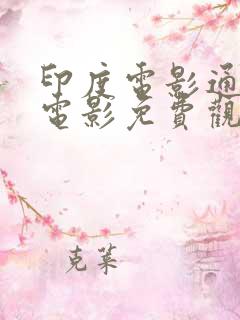 印度電影通
電影免費觀
克萊